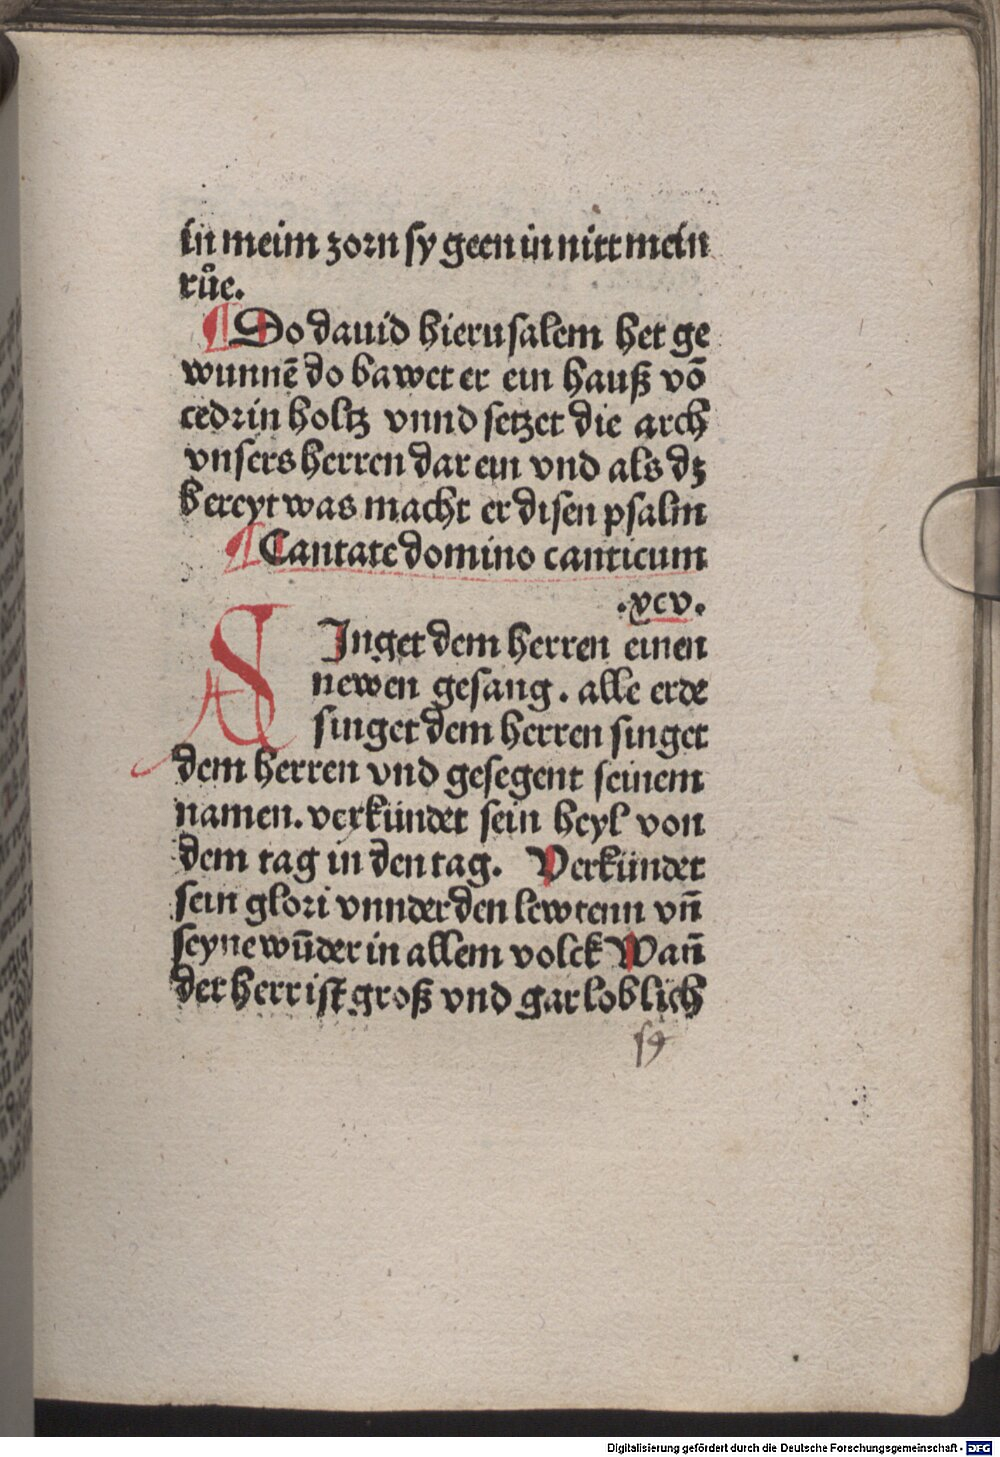 in meim zorn sy geen in nitt mein
růe.
¶ Do dauid hierusalem het ge
wunnē do bawet er ein hauß vō
cedrin holtz vnnd setzet die arch
vnsers herren dar ein vnd als dz
bereyt was macht er disen psalm
¶ Cantate domino canticum
.xcv.
SInget dem herren einen
newen gesang. alle erde
singet dem herren singet
dem herren vnd gesegent seinem
namen. verkündet sein heyl von
dem tag in den tag. Verkündet
sein glori vnnder den lewtenn vn̄
seyne wūder in allem volck Wan̄
der herr ist groß vnd gar loblich
Digitalisierung gefördert durch die Deutsche Forschungsgemeinschaft - DFG